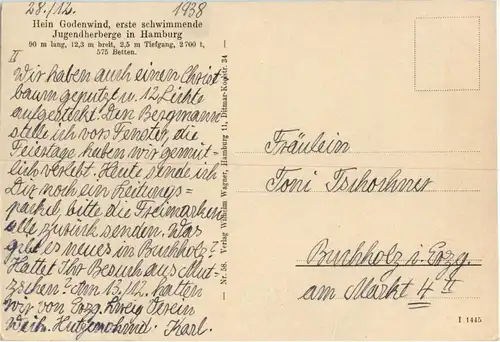 28./12. 1938
Hein Godenwind, erste schwimmende
Jugendherberge in Hamburg
90 m lang, 12,3 m breit, 2,5 m Tiefgang, 2700 t,
575 Betten.
II
Wir haben auch einen Christ
baum geputzt u. 12 Lichte
aufgesteckt. Den Bergmann
stelle ich vors Fenster, die
Feiertage haben wir gemüt-
lich verlebt. Heute sende ich
Dir noch ein Zeitungs=
packet, bitte die Freimarken
alle zurück senden. Was
gibt es neues in Buchholz?
Hattet Ihr Besuch aus Mut
zschen? am 13./12. hatten
wir von Erzg. Zweig Verein
Weih. Hutzenohmd. Karl.
Nr. 58. Verlag Wilhelm Wagner, Hamburg 11, Ditmar-Koelstr. 34
Fräulein
Toni Tschochner
Buchholz i. Erzg.
am Markt 4 II
I 1445